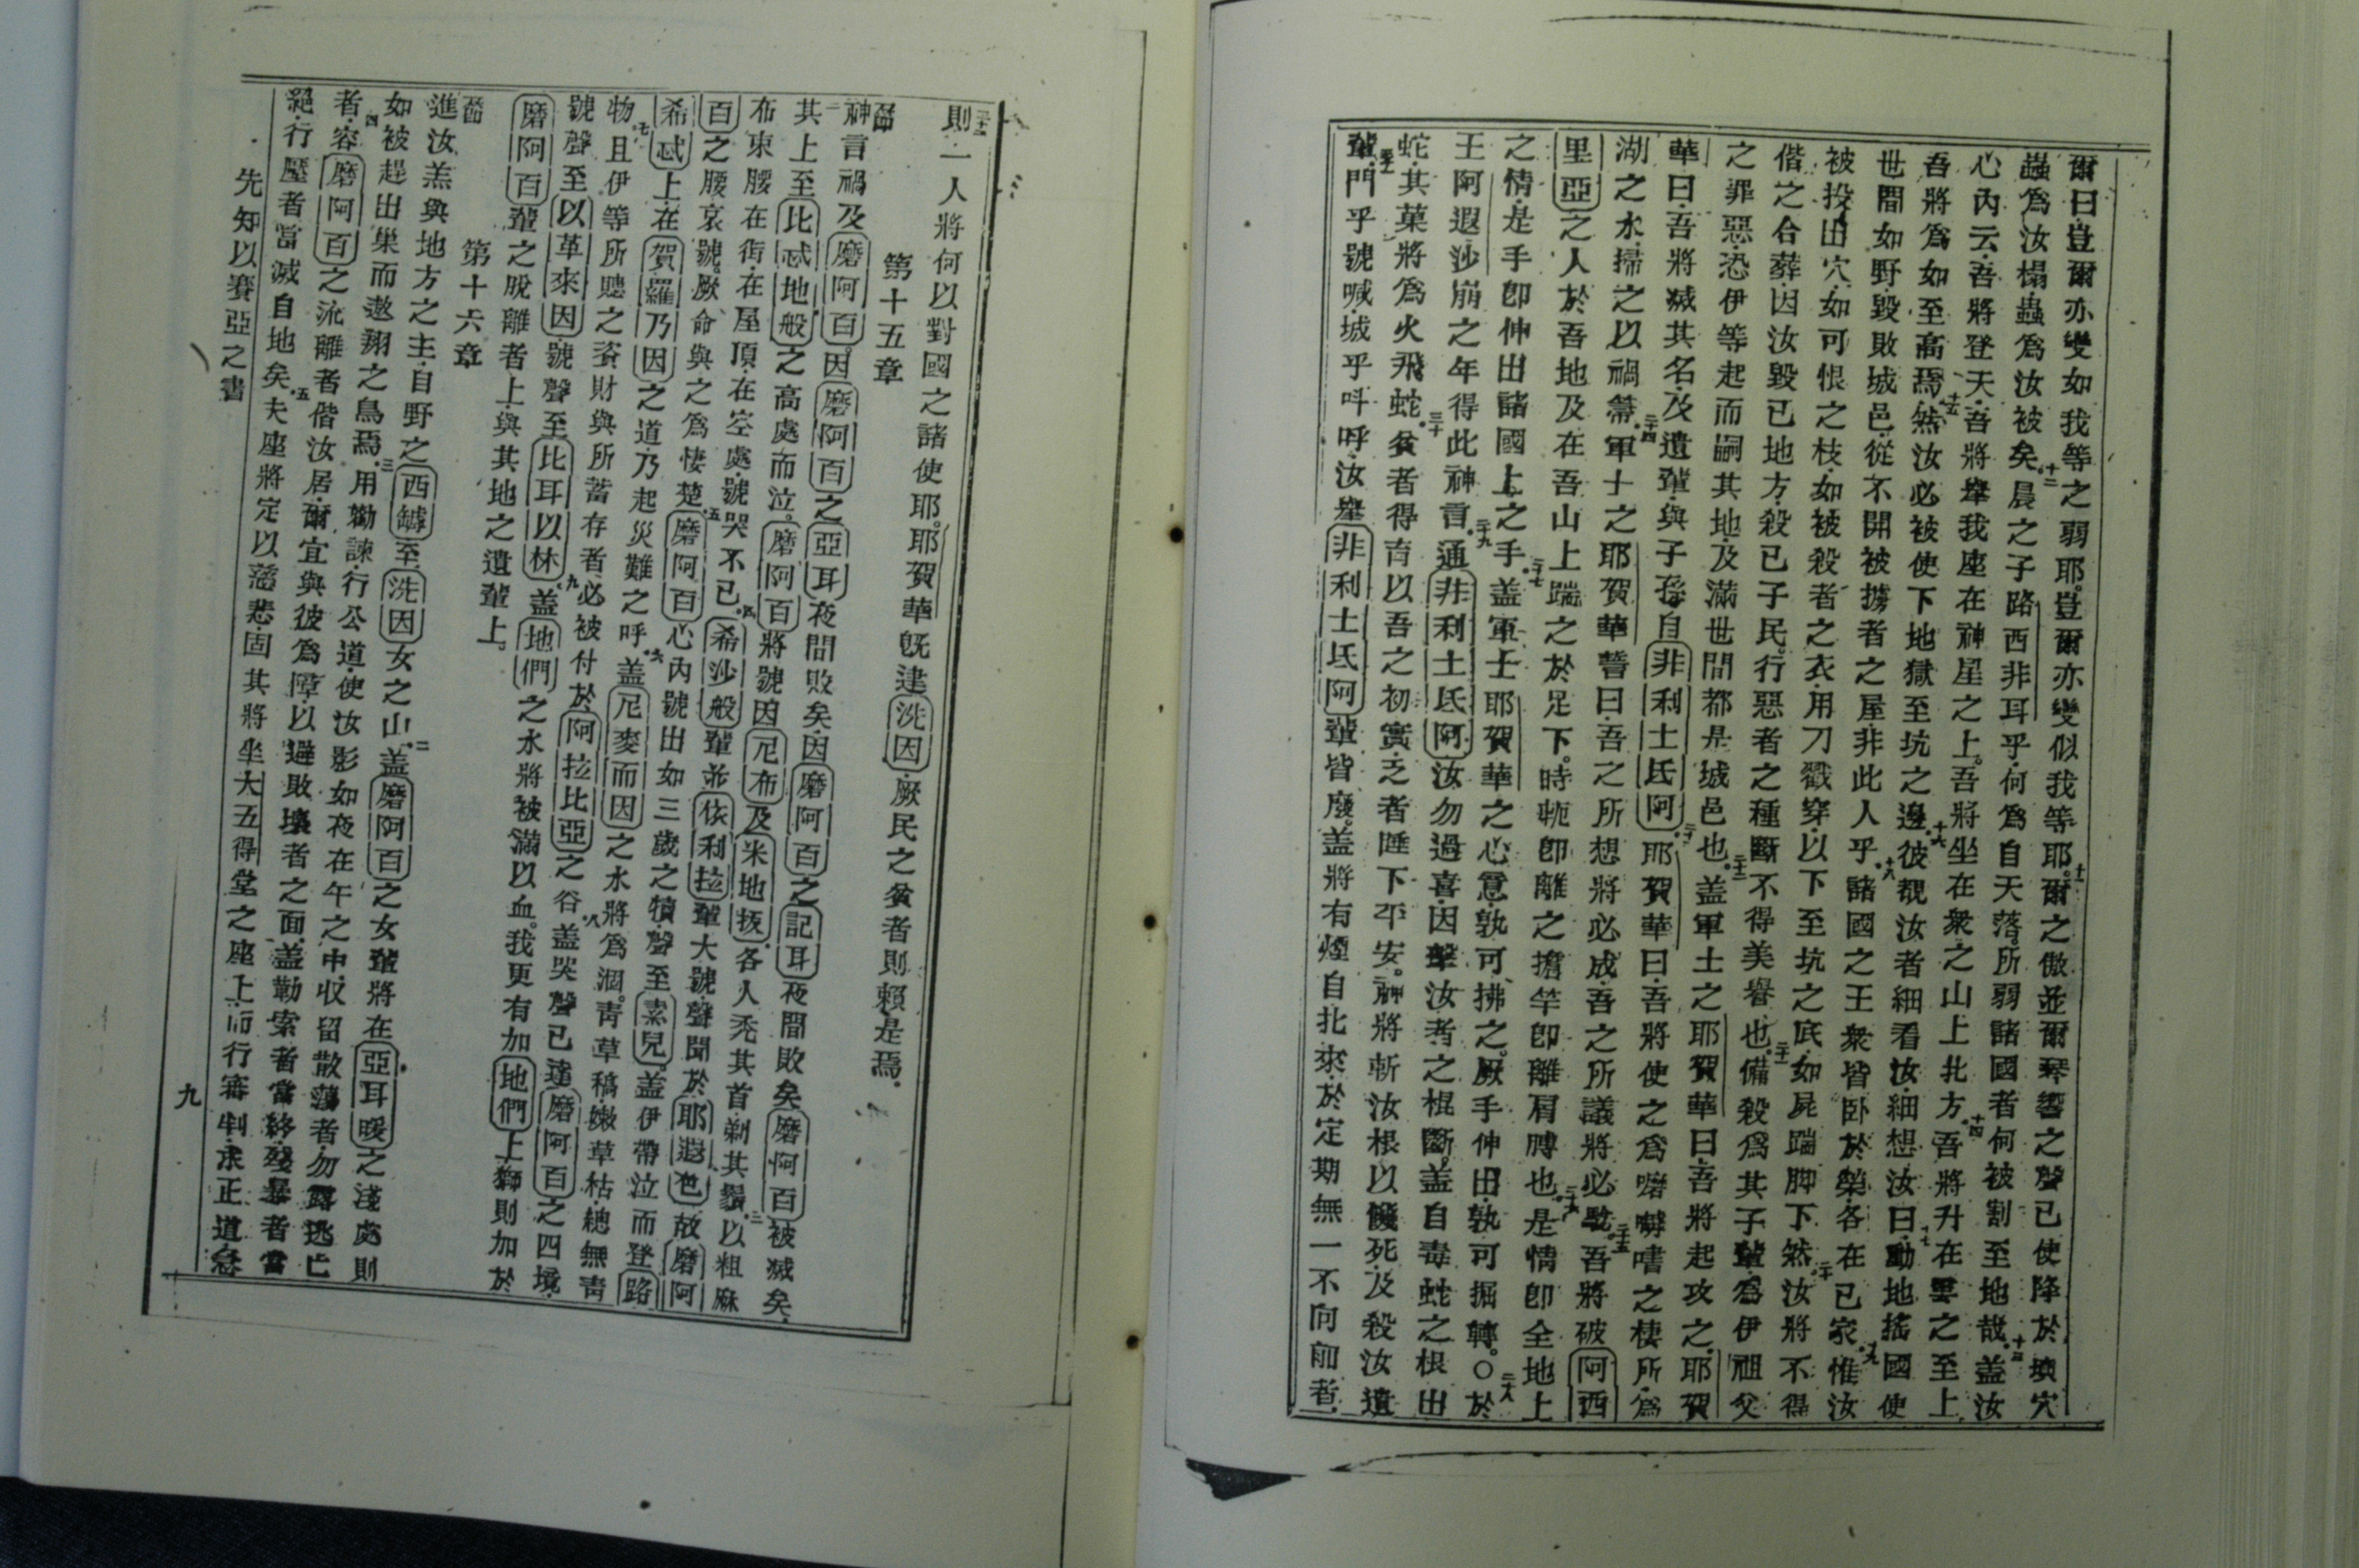 爾曰豈爾亦變如我等之弱耶豈爾亦變似我等耶十一爾之傲並爾琴響之聲已使降於墳穴
蟲爲汝榻蟲爲汝被矣十二晨之子路西非耳乎何爲自天落所弱諸國者何被割至地哉十三盖汝
心內云吾將登天吾將舉我座在神星之上吾將坐在衆之山上北方十四吾將升在雲之至上
吾將爲如至高焉十五然汝必被使下地獄至坑之邊十六彼覩汝者細看汝細想汝曰十七動地搖國使
世間如野毀敗城邑從不開被擄者之屋非此人乎十八諸國之王衆皆卧於榮各在已家十九惟汝
被投出穴如可恨之枝如被殺者之衣用刀戳穿以下至坑之底如屍踹脚下然二十汝將不得
偕之合葬因汝毀已地方殺已子民行惡者之種斷不得美譽也二十一備殺爲其子輩爲伊祖父
之罪惡恐伊等起而嗣其地及滿世間都是城邑也二十二盖軍士之耶賀華曰吾將起攻之耶賀
華曰吾將滅其名及遺輩與子孫自非利士氐阿二十三耶賀華曰吾將使之爲嘮嘲嗜之棲所爲
湖之水掃之以禍箒二十四軍士之耶賀華誓曰吾之所想將必成吾之所議將必驗二十五吾將破阿西
里亞之人於吾地及在吾山上踹之於足下時軛卽離之擔竿卽離肩膊也二十六是情卽全地上
之情是手卽伸出諸國上之手二十七盖軍士耶賀華之心意孰可拂之厥手伸出孰可掘轉〇二十八於
王阿遐沙崩之年得此神言二十九通非利士氐阿汝勿過喜因擊汝者之棍斷盖自毒蛇之根出
蛇其菓將爲火飛蛇三十貧者得育以吾之初實乏者睡下平安神將斬汝根以饑死及殺汝遺
輩三十一門乎號喊城乎呌呼汝舉非利士氐阿輩皆廢盖將有煙自北來於定期無一不向前者
三十二則一人將何以對國之諸使耶耶賀華旣建洗因厥民之貧者則賴是焉
第十五章
神言禍及磨阿百因磨阿百之亞耳夜間敗矣因磨阿百之記耳夜間敗矣磨阿百被滅矣
其上至比忒地般之高處而泣磨阿百將號因尼布及米地扳各人禿其首剃其鬚三以粗麻
布束腰在街在屋頂在空處號哭不已四希沙般輩並依利拉輩大號聲聞於耶遐色故磨阿
百之腰哀號厥命與之爲悽楚五磨阿百心內號出如三歲之犢聲至素兒盖伊帶泣而登路
希忒上在賀羅乃因之道乃起災難之呼六盖尼麥而因之水將爲涸靑草稿嫩草枯總無靑
物七且伊等所賸之資財與所蓄存者必被付於阿拉比亞之谷八盖哭聲已達磨阿百之四境
號聲至以革來因號聲至比耳以林九盖地們之水將被滿以血我更有加地們上獅則加於
磨阿百輩之脫離者上與其地之遺輩上
第十六章
進汝羔與地方之主自野之西罅至洗因女之山二盖磨阿百之女輩將在亞耳暖之淺處則
如被趕出巢而遨翔之鳥焉三用勸諫行公道使汝影如夜在午之中收留散蕩者勿露逃亡
者四容磨阿百之流離者偕汝居爾宜與彼爲障以避敗壞者之面盖勒索者當終殘暴者當
絕行壓者當滅自地矣五夫座將定以慈悲固其將坐大五得堂之座上而行審判求正道急
先知以賽亞之書
九